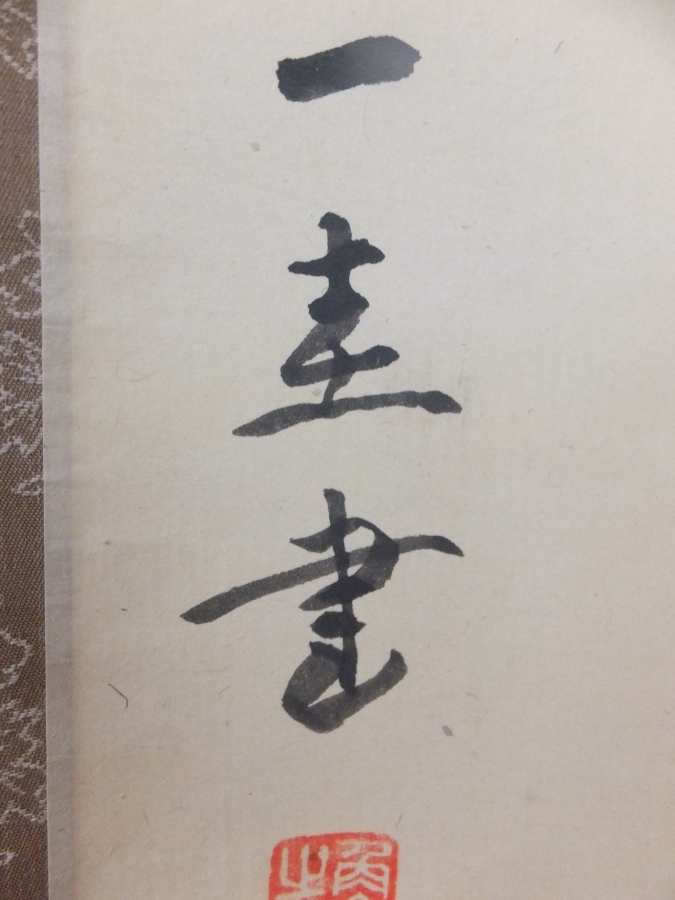 一圭書